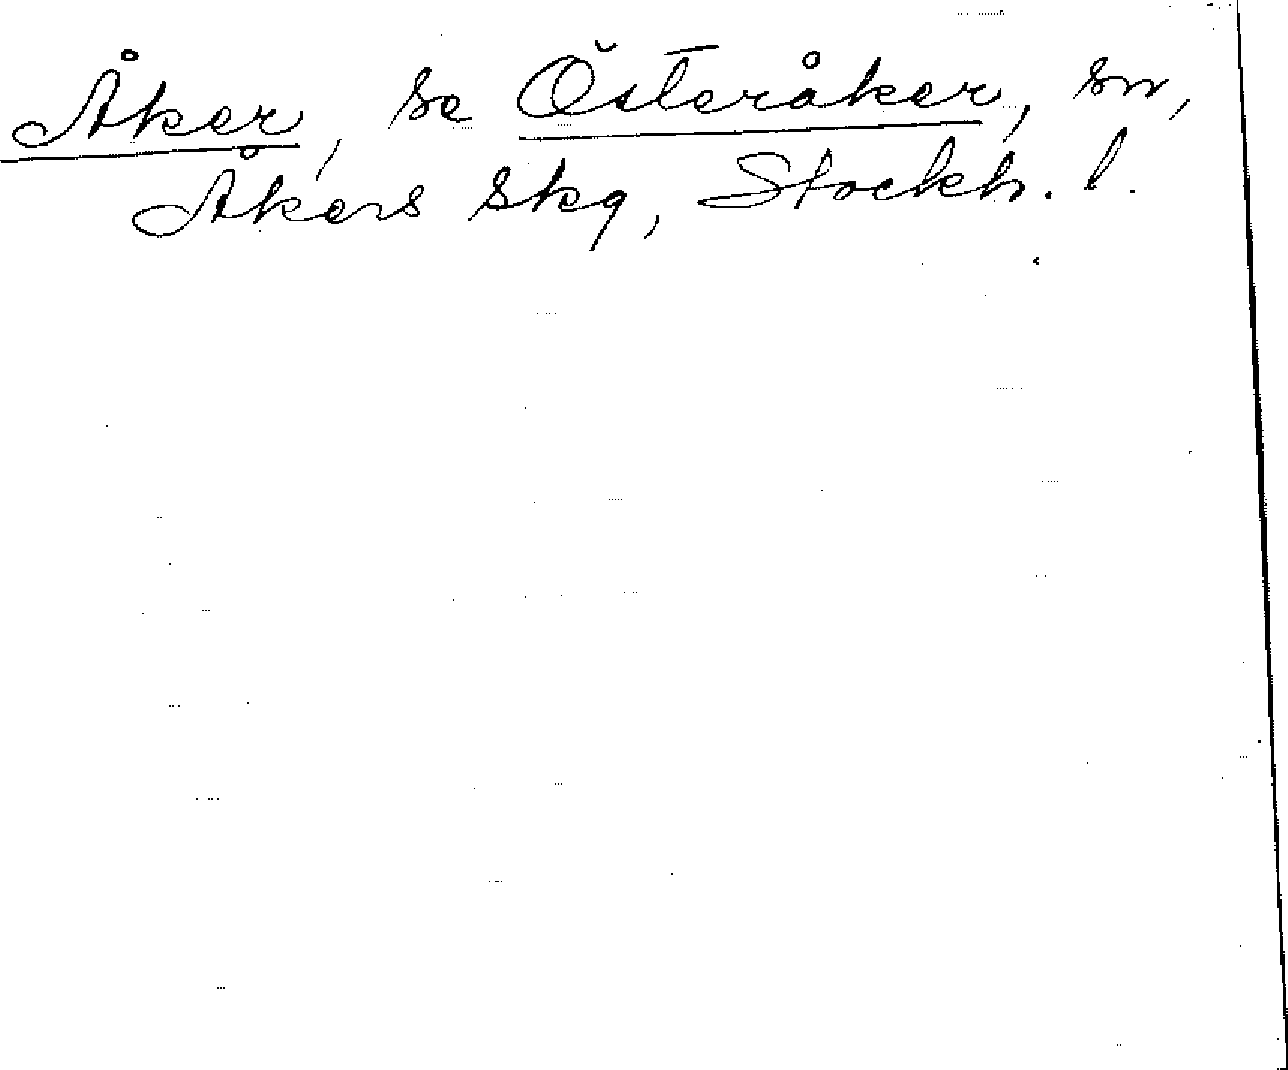 Åker, se Österåker, sn,
Åkers skg, Stockh. l.